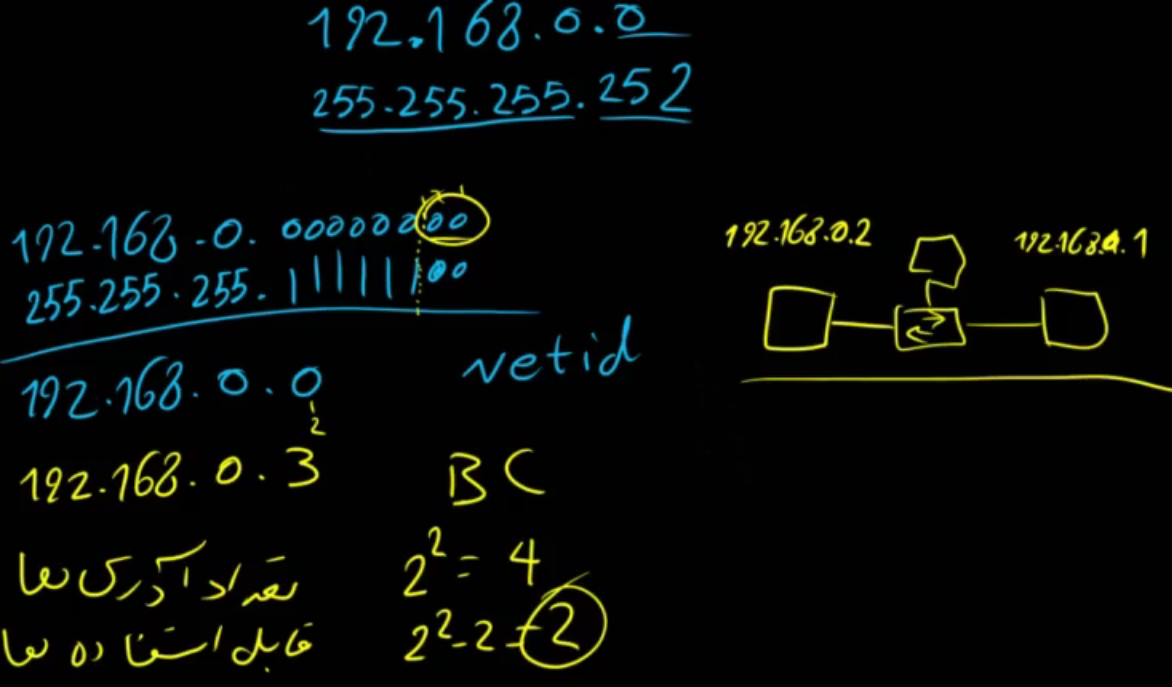 192.168.0.0
255.255.255.252
192.168.0.00000000
255.255.255.11111100
192.168.0.0 netid
1
2
192.168.0.3 BC
تعداد آدرس ها 2²=4
قابل استفاده ها 2²-2=2
192.168.0.2
192.168.0.1